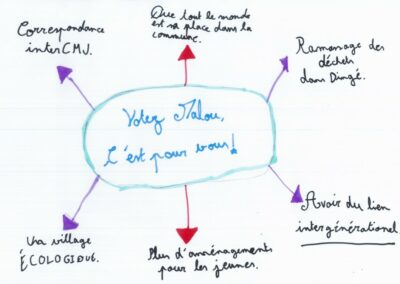 Correspondance
interCMJ.
Que tout le monde
est sa place dans la
commune.
Ramassage des
déchets
dans Dingé.
Votez Malou,
C'est pour vous!
Un village
ÉCOLOGIQUE.
Plus d'aménagements
pour les jeunes.
Avoir du lien
intergénérationel